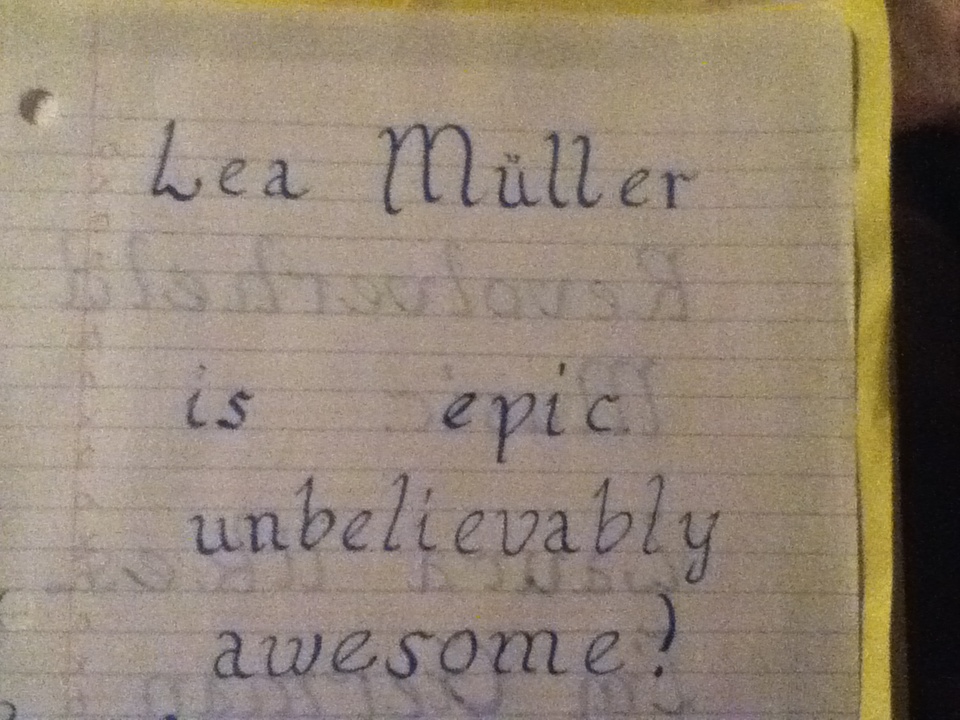 Lea Müller
Revolverheld
is epic
unbelievably
awesome?